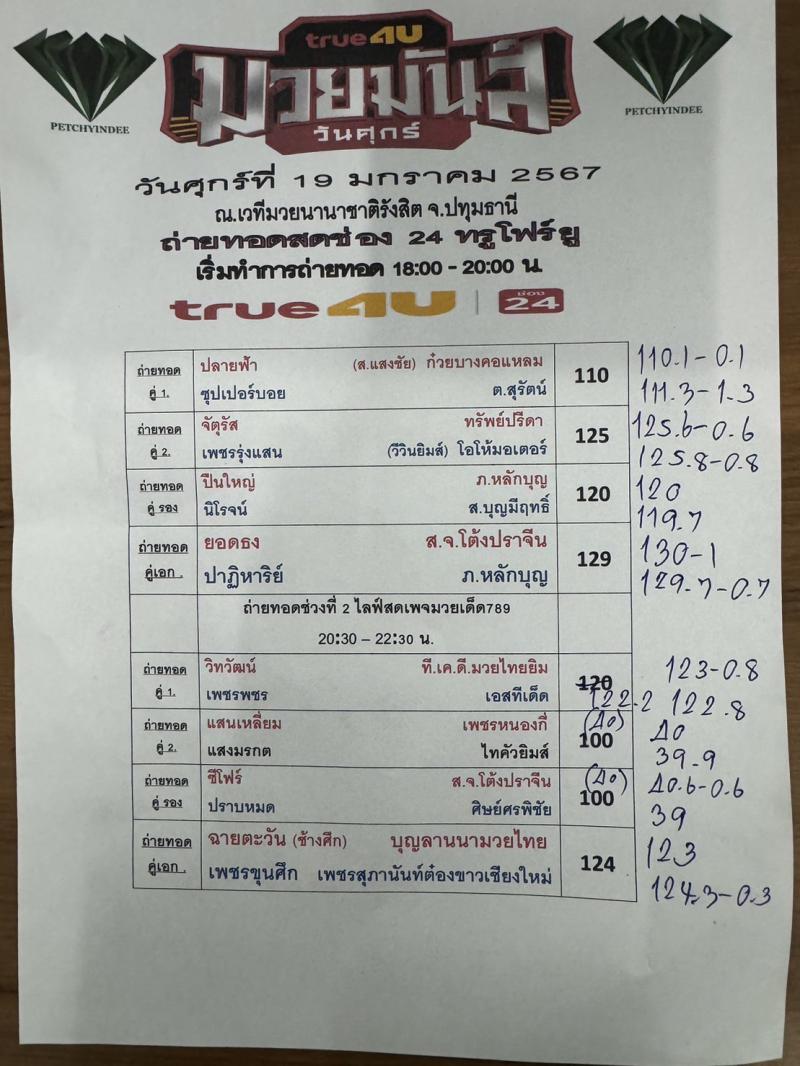 PETCHYINDEE
true4U
มวยมันส์
วันศุกร์
PETCHYINDEE
วันศุกร์ที่ 19 มกราคม 2567
ณ.เวทีมวยนานาชาติรังสิต จ.ปทุมธานี
ถ่ายทอดสดช่อง 24 ทรูโฟร์ยู
เริ่มทำการถ่ายทอด 18:00 - 20:00 น.
true4U | ช่อง 24
ถ่ายทอด ปลายฟ้า (ส.แสงชัย) ก๋วยบางคอแหลม 110 110.1-0.1
คู่ 1. ซุปเปอร์บอย ต.สุรัตน์ 111.3-1.3
ถ่ายทอด จัตุรัส ทรัพย์ปรีดา 125 125.6-0.6
คู่ 2. เพชรรุ่งแสน (วีวินยิมส์) โอโห้มอเตอร์ 125.8-0.8
ถ่ายทอด ปืนใหญ่ ภ.หลักบุญ 120 120
คู่ รอง นิโรจน์ ส.บุญมีฤทธิ์ 119.7
ถ่ายทอด ยอดธง ส.จ.โต้งปราจีน 129 130-1
คู่เอก . ปาฏิหาริย์ ภ.หลักบุญ 129.7-0.7
ถ่ายทอดช่วงที่ 2 ไลฟ์สดเพจมวยเด็ด789
20:30 – 22:30 น.
ถ่ายทอด วิทวัฒน์ ที.เค.ดี.มวยไทยยิม 120 123-0.8
คู่ 1. เพชรพชร เอสทีเด็ด 122.2 122.8
ถ่ายทอด แสนเหลี่ยม เพชรหนองกี่ 100 (40) 40
คู่ 2. แสงมรกต ไทคัวยิมส์ 39.9
ถ่ายทอด ซีโฟร์ ส.จ.โต้งปราจีน 100 (40) 40.6-0.6
คู่ รอง ปราบหมด ศิษย์ศรพิชัย 39
ถ่ายทอด ฉายตะวัน (ช้างศึก) บุญลานนามวยไทย 124 123
คู่เอก . เพชรขุนศึก เพชรสุภานันท์ต๋องขาวเชียงใหม่ 124.3-0.3